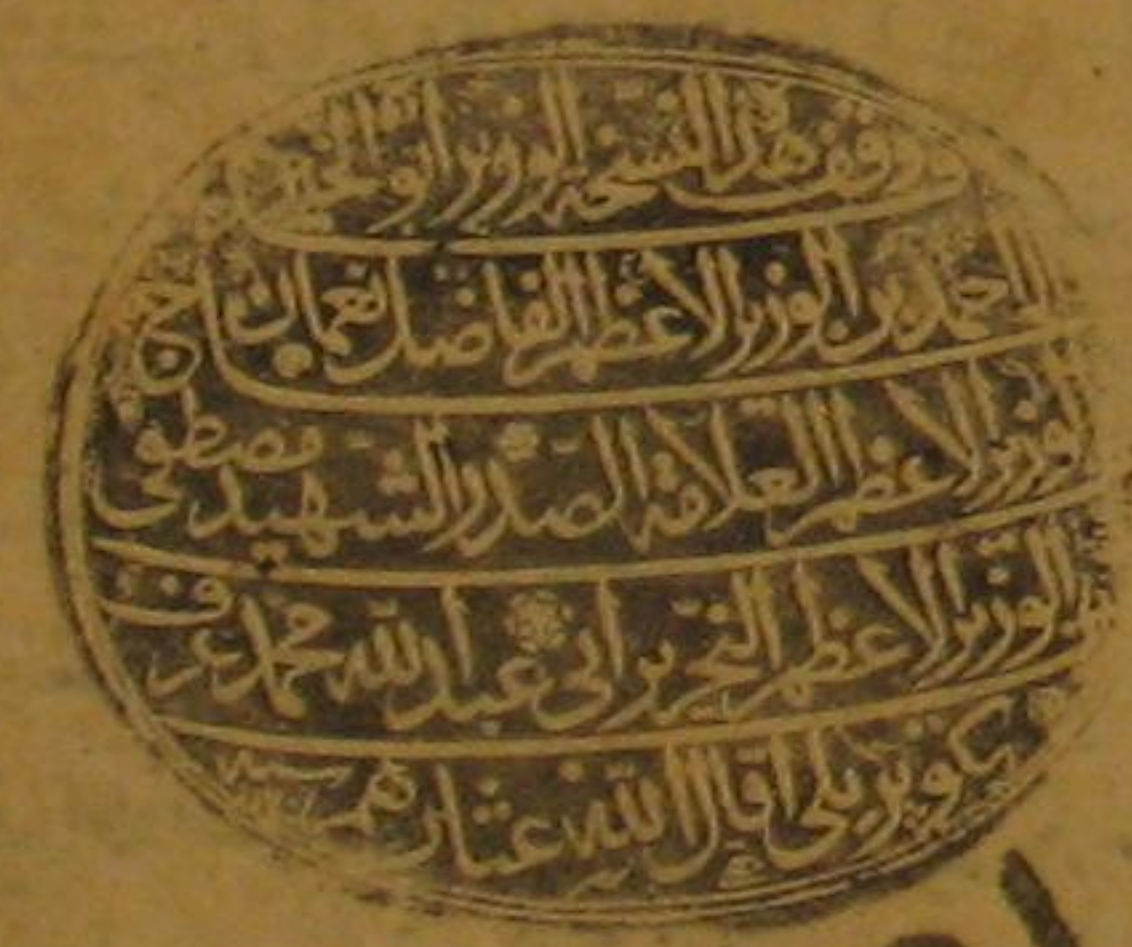 قد وقف هذه النسخة الوزير أبو الخير
الحاج احمد بن الوزير الاعظم الفاضل نعمان بن
الوزير الاعظم العلامة الصدر الشهيد مصطفى
بن الوزير الاعظم النحرير ابي عبد الله محمد عرف
بكوپريلي اقال الله عثارهم